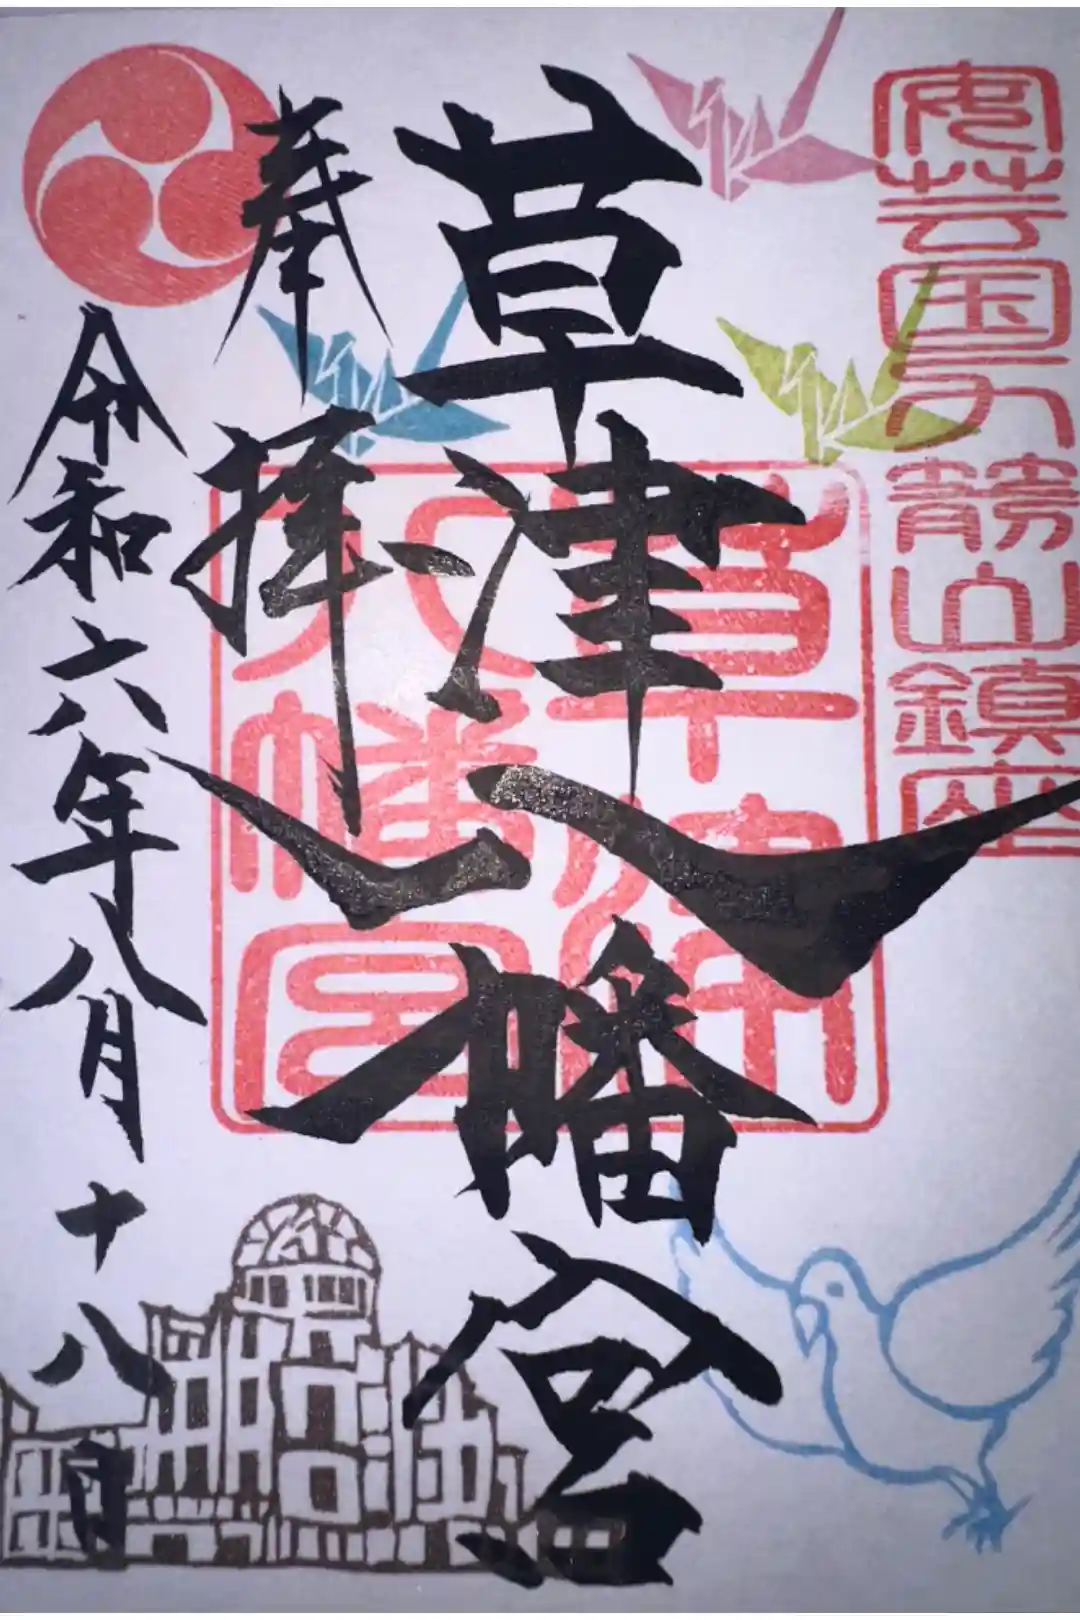 安芸国乃靗山鎮座
草津八幡宮
草津八幡宮
奉拝
令和六年八月十八日